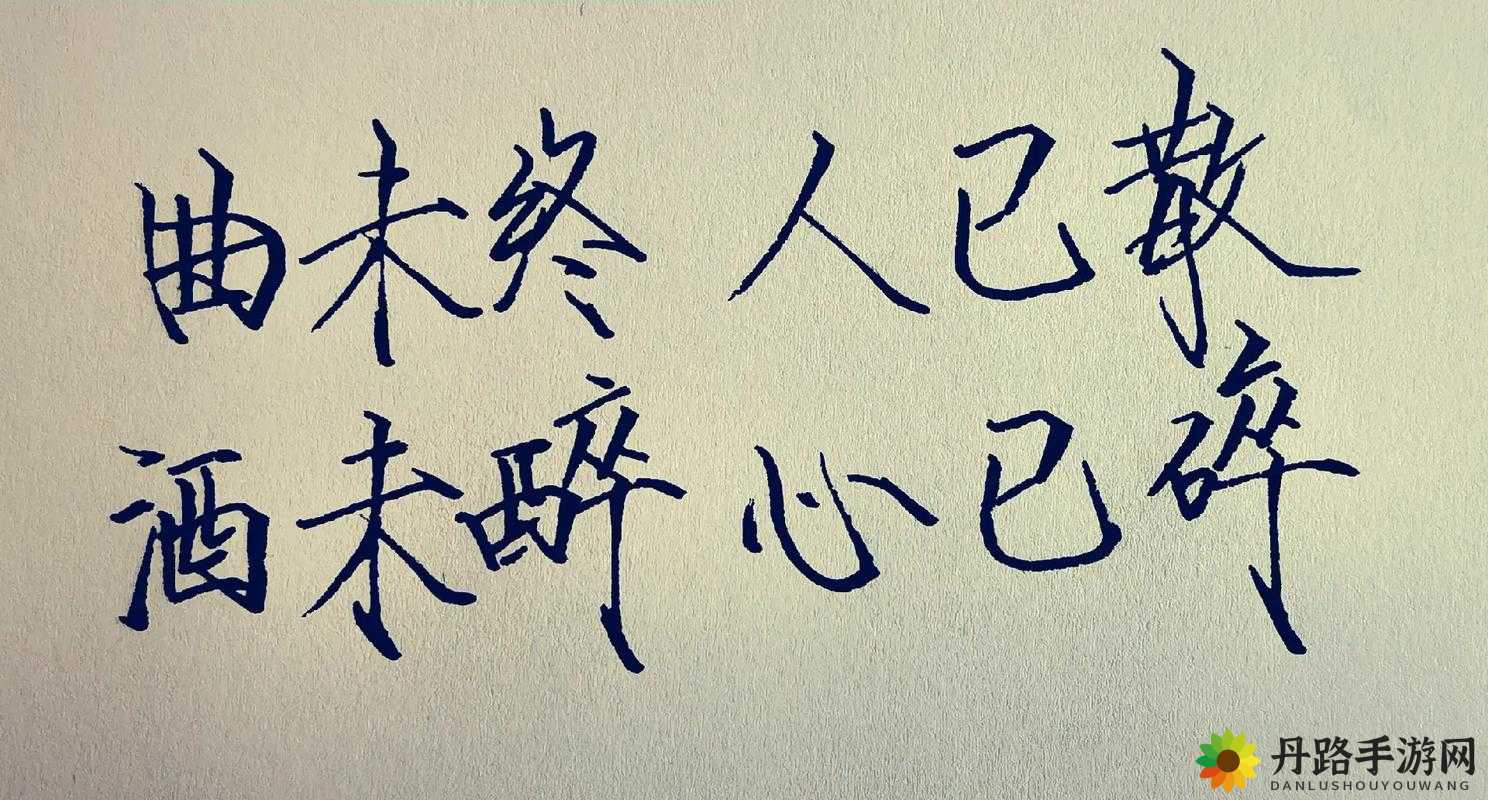 曲未终 人已散
酒未醉 心已碎
丹路手游网
DANLUSHOUYOUWANG